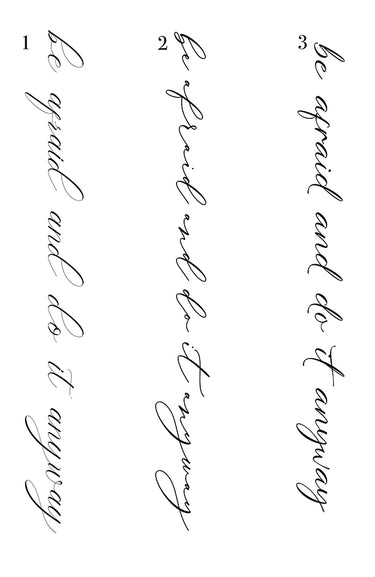 1
be afraid and do it anyway
2
be afraid and do it anyway
3
be afraid and do it anyway